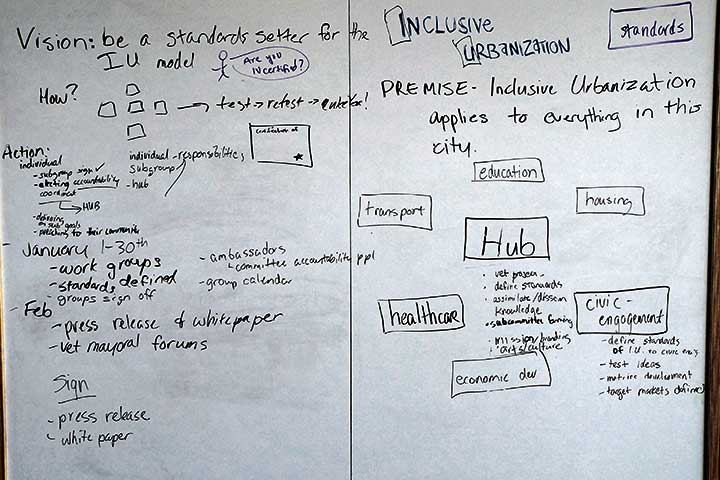 Vision: be a standards setter for the
IU model
Are you
IU certified?
How?
test → retest →
Action:
individual
- subgroup sign ✓
- electing accountability
coordinat
→ HUB
- defining
sub goals
- preaching to their community
individual - responsibilities
subgroup
- hub
certificate of
- January 1-30th
- work groups
- standards defined
- groups sign off
- ambassadors
- committee accountability ppl
- group calendar
- Feb
- press release & whitepaper
- vet mayoral forums
Sign
- press release
- white paper
INCLUSIVE
URBANIZATION
standards
PREMISE - Inclusive Urbanization
applies to everything in this
city.
education
transport
housing
Hub
• vet
• define standards
• assimilate/dissem
knowledge
• subcommittee forming
• mission/branding
• arts/culture
healthcare
civic-
engagement
- define standards
of I.U. to civic eng
- test ideas
- metrics development
- target markets defined
economic dev